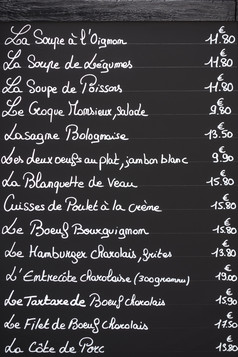 La Soupe à l'Oignon €11.80
La Soupe de Légumes €11.80
La Soupe de Poissons €11.80
Le Croque Monsieur, salade €9.80
Lasagne Bolognaise €13.50
Les deux oeufs au plat, jambon blanc €9.90
La Blanquette de Veau €15.80
Cuisses de Poulet à la crème €15.80
Le Boeuf Bourguignon €15.80
Le Hamburger Charolais, frites €13.80
L'Entrecôte charolaise (300grammes) €19.00
Le Tartare de Boeuf charolais €15.90
Le Filet de Boeuf charolais €17.50
La Côte de Porc €13.80